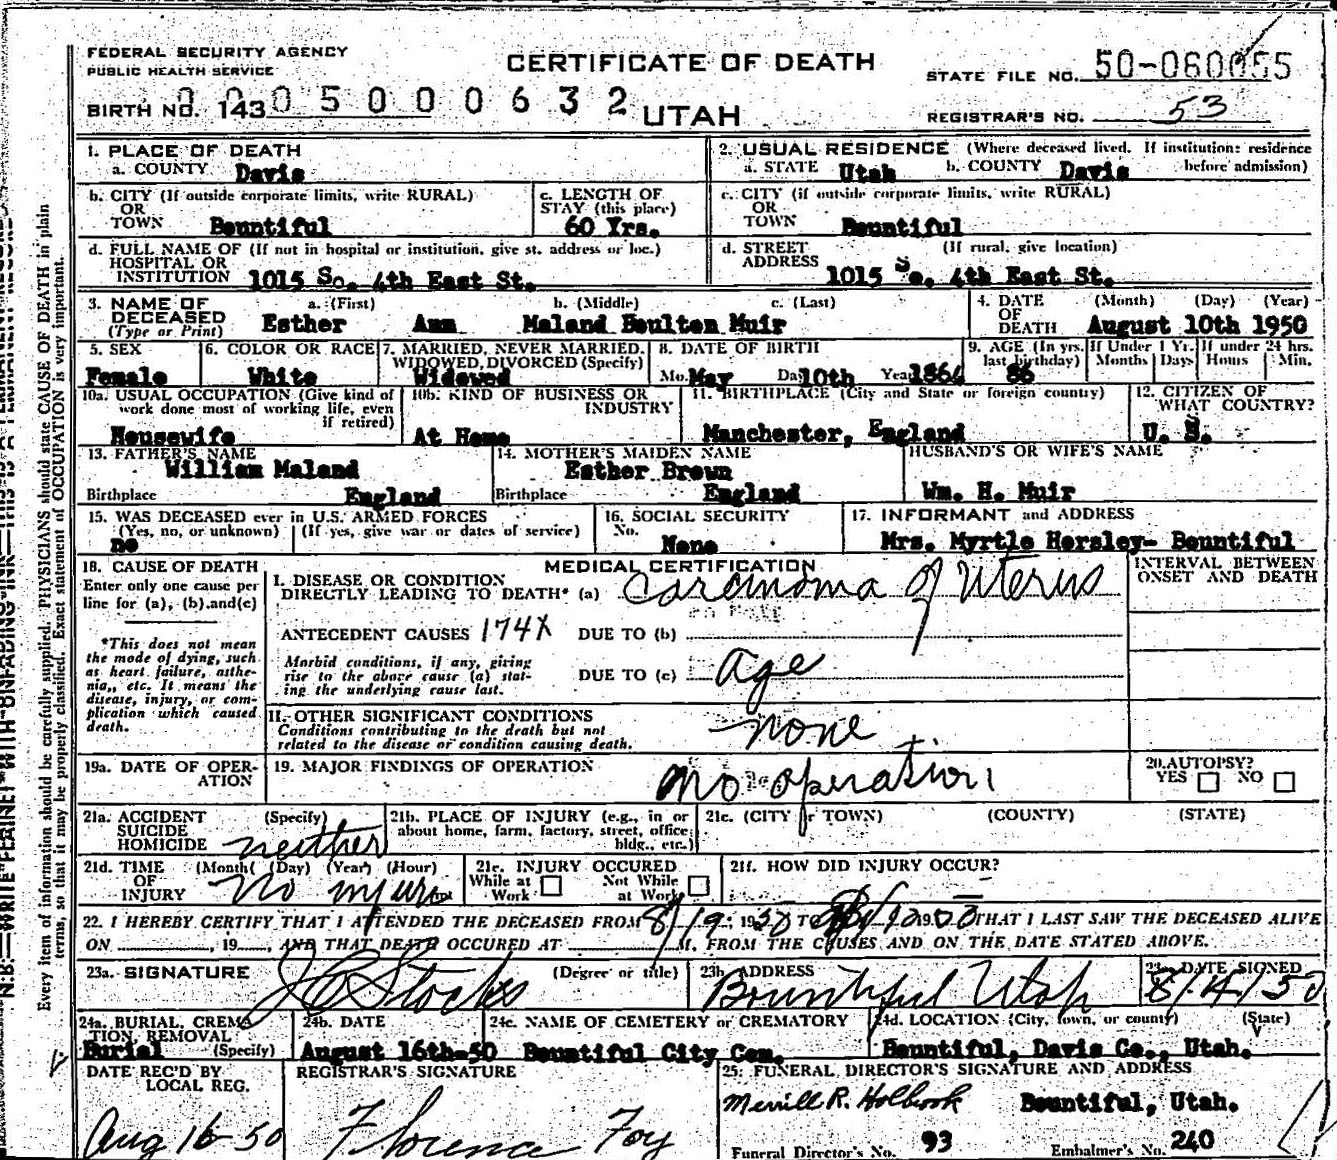 FEDERAL SECURITY AGENCY
PUBLIC HEALTH SERVICE
CERTIFICATE OF DEATH
STATE FILE NO. 50-060055
BIRTH NO. 143 0 0 0 5 0 0 0 6 3 2
UTAH
REGISTRAR'S NO. 53
1. PLACE OF DEATH
a. COUNTY Davis
2. USUAL RESIDENCE (Where deceased lived. If institution: residence before admission)
a. STATE Utah b. COUNTY Davis
b. CITY (If outside corporate limits, write RURAL)
OR
TOWN Bountiful
c. LENGTH OF
STAY (this place)
60 Yrs.
c. CITY (if outside corporate limits, write RURAL)
OR
TOWN Bountiful
d. FULL NAME OF (If not in hospital or institution, give st. address or loc.)
HOSPITAL OR
INSTITUTION 1015 So. 4th East St.
d. STREET (If rural, give location)
ADDRESS
1015 So. 4th East St.
3. NAME OF a. (First) b. (Middle) c. (Last)
DECEASED
(Type or Print) Esther Ann Maland Boulton Muir
4. DATE (Month) (Day) (Year)
OF
DEATH August 10th 1950
5. SEX
Female
6. COLOR OR RACE
White
7. MARRIED, NEVER MARRIED,
WIDOWED, DIVORCED (Specify)
Widowed
8. DATE OF BIRTH
Mo. May Da. 10th Year 1864
9. AGE (In yrs. last birthday) 86
If Under 1 Yr. Months Days
If under 24 hrs. Hours Min.
10a. USUAL OCCUPATION (Give kind of
work done most of working life, even
if retired)
Housewife
10b. KIND OF BUSINESS OR
INDUSTRY
At Home
11. BIRTHPLACE (City and State or foreign country)
Manchester, England
12. CITIZEN OF
WHAT COUNTRY?
U. S.
13. FATHER'S NAME
William Maland
Birthplace England
14. MOTHER'S MAIDEN NAME
Esther Brown
Birthplace England
HUSBAND'S OR WIFE'S NAME
Wm. H. Muir
15. WAS DECEASED ever in U.S. ARMED FORCES
(Yes, no, or unknown) (If yes, give war or dates of service)
no
16. SOCIAL SECURITY
No.
None
17. INFORMANT and ADDRESS
Mrs. Myrtle Horsley- Bountiful
18. CAUSE OF DEATH
Enter only one cause per
line for (a), (b), and (c)
*This does not mean
the mode of dying, such
as heart failure, asthe-
nia, etc. It means the
disease, injury, or com-
plication which caused
death.
MEDICAL CERTIFICATION
INTERVAL BETWEEN
ONSET AND DEATH
I. DISEASE OR CONDITION
DIRECTLY LEADING TO DEATH* (a) Carcinoma of Uterus
ANTECEDENT CAUSES 174X DUE TO (b)
Morbid conditions, if any, giving
rise to the above cause (a) stat-
ing the underlying cause last.
DUE TO (c) Age
II. OTHER SIGNIFICANT CONDITIONS
Conditions contributing to the death but not
related to the disease or condition causing death.
none
19a. DATE OF OPER-
ATION
19. MAJOR FINDINGS OF OPERATION
No operation
20. AUTOPSY?
YES NO
21a. ACCIDENT (Specify)
SUICIDE
HOMICIDE neither
21b. PLACE OF INJURY (e.g., in or
about home, farm, factory, street, office
bldg., etc.)
21c. (CITY or TOWN) (COUNTY) (STATE)
21d. TIME (Month) (Day) (Year) (Hour)
OF
INJURY No injury
21e. INJURY OCCURED
While at Work Not While at Work
21f. HOW DID INJURY OCCUR?
22. I HEREBY CERTIFY THAT I ATTENDED THE DECEASED FROM 8/19, 1950 TO 19 THAT I LAST SAW THE DECEASED ALIVE
ON , 19 , AND THAT DEATH OCCURED AT M. FROM THE CAUSES AND ON THE DATE STATED ABOVE.
23a. SIGNATURE (Degree or title)
J C Stocks
23b. ADDRESS
Bountiful Utah
23c. DATE SIGNED
8/14/50
24a. BURIAL, CREMA
TION, REMOVAL
Burial (Specify)
24b. DATE
August 16th-50
24c. NAME OF CEMETERY or CREMATORY
Bountiful City Cem.
24d. LOCATION (City, town, or county) (State)
Bountiful, Davis Co., Utah.
DATE REC'D BY
LOCAL REG.
Aug 16 50
REGISTRAR'S SIGNATURE
Florence Foy
25. FUNERAL DIRECTOR'S SIGNATURE AND ADDRESS
Merrill R. Holbrook Bountiful, Utah.
Funeral Director's No. 93 Embalmer's No. 240
N.B.—WRITE PLAINLY WITH UNFADING INK—THIS IS A PERMANENT RECORD
Every item of information should be carefully supplied. PHYSICIANS should state CAUSE OF DEATH in plain
terms, so that it may be properly classified. Exact statement of OCCUPATION is very important.